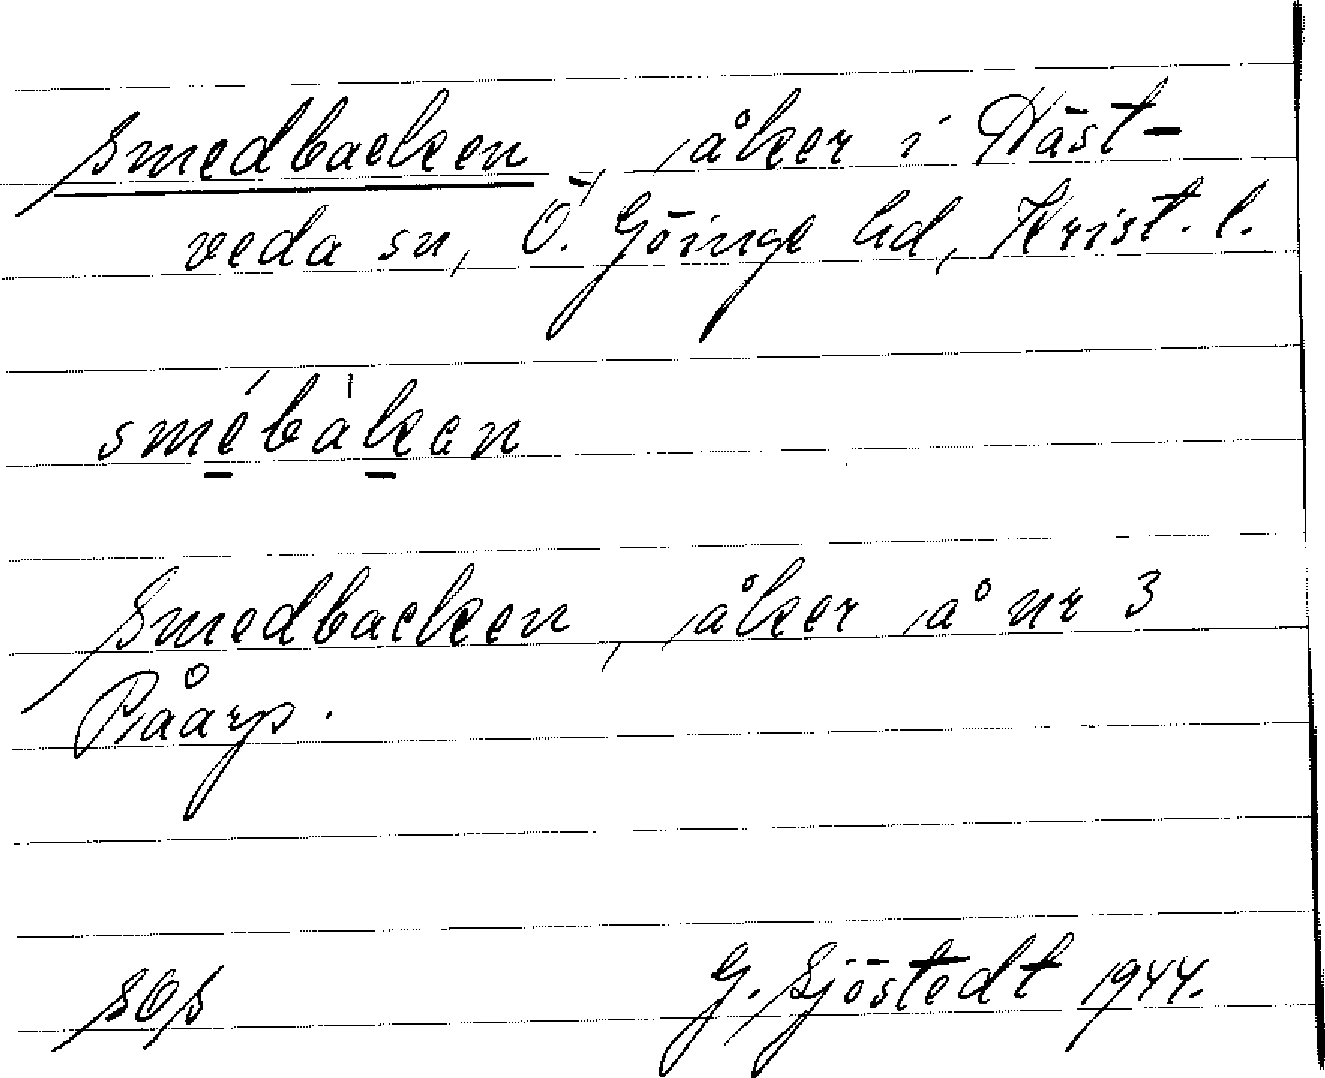 Smedbacken, åker i Häst-
veda sn, Ö. Göinge hd, Krist. l.
smébàken
Smedbacken, åker å nr 3
Råarp.
SOS G. Sjöstedt 1944.